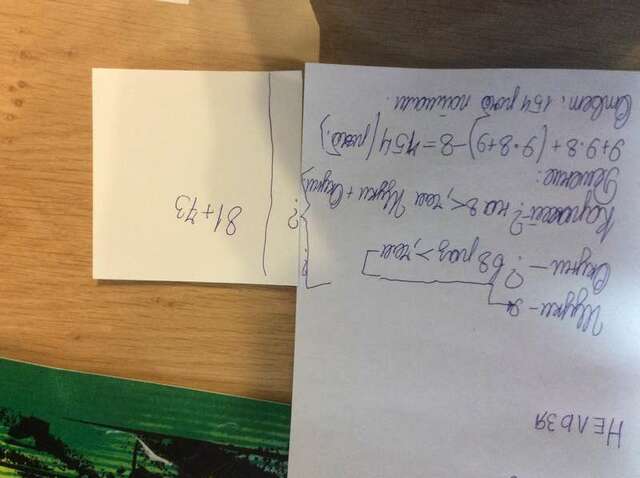 НЕЛЬЗЯ
Щуки - 9
Окуни - ? в 8 раз >, чем
Карасей - ? на 8 <, чем Щуки + Окуни
?
?
Решение:
9+9·8+(9·8+9)-8=154 (рыб.)
Ответ: 154 рыб поймали.
81+73